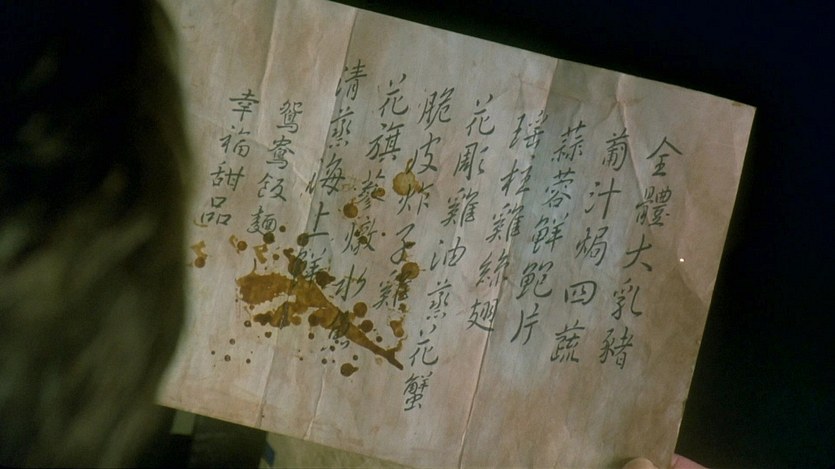 全體大乳豬
葡汁焗四蔬
蒜蓉鮮鮑片
瑤柱雞絲翅
花雕雞油蒸花蟹
脆皮炸子雞
花旗蔘燉水魚
清蒸海上鮮
鴛鴦飯麵
幸福甜品